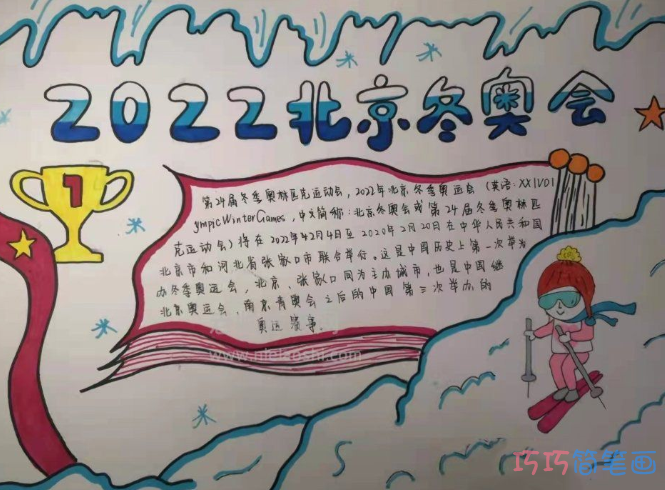 2022北京冬奥会
1
第24届冬季奥林匹克运动会，2022年北京冬季奥运会（英语：XXIVOl
ympicWinterGames，中文简称：北京冬奥会或第24届冬季奥林匹
克运动会）将在2022年2月4日至2020年2月20日在中华人民共和国
北京市和河北省张家口市联合举行。这是中国历史上第一次举
办冬季奥运会，北京、张家口同为主办城市，也是中国继
北京奥运会，南京青奥会之后的中国第三次举办的
奥运赛事。
巧巧简笔画